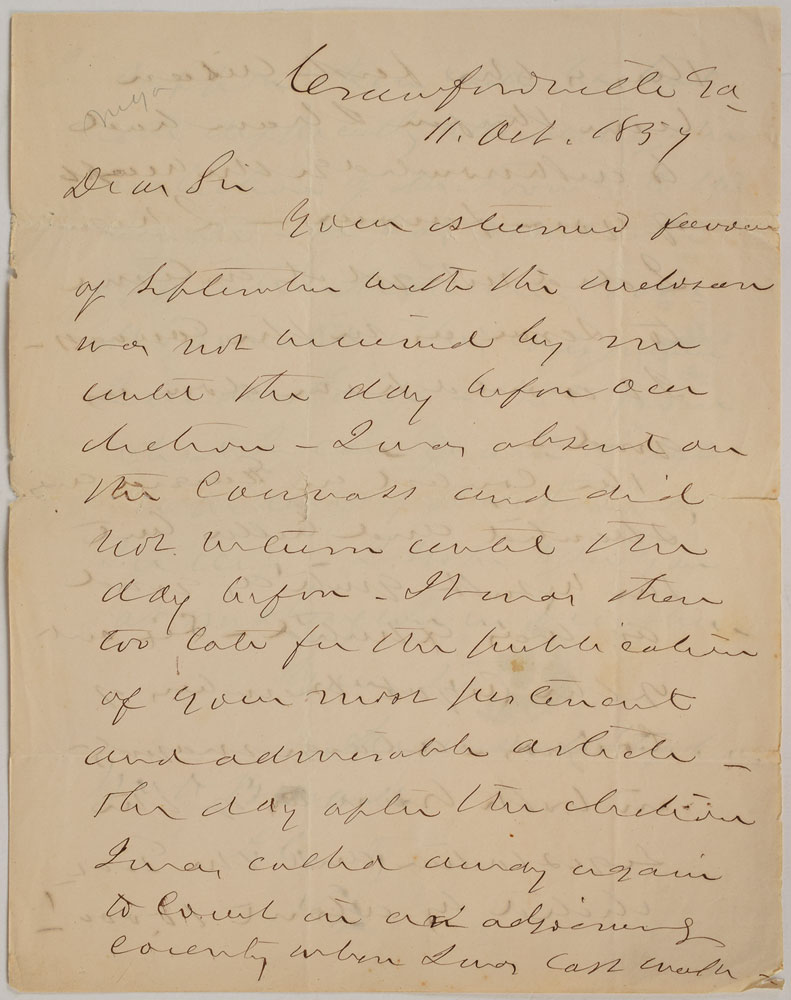 Crawfordville Ga
11. Oct. 1857
Dear Sir
Your esteemed favour
of September with the inclosure
was not received by me
until the day before our
election - I was absent on
the Canvass and did
not return until the
day before - It was then
too late for the publication
of your most pertinent
and admirable article -
The day after the election
I was called away again
to Court in an adjoining
county where I was last week -